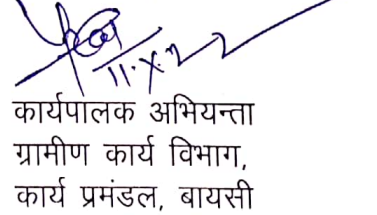 11.X.22
कार्यपालक अभियन्ता
ग्रामीण कार्य विभाग,
कार्य प्रमंडल, बायसी